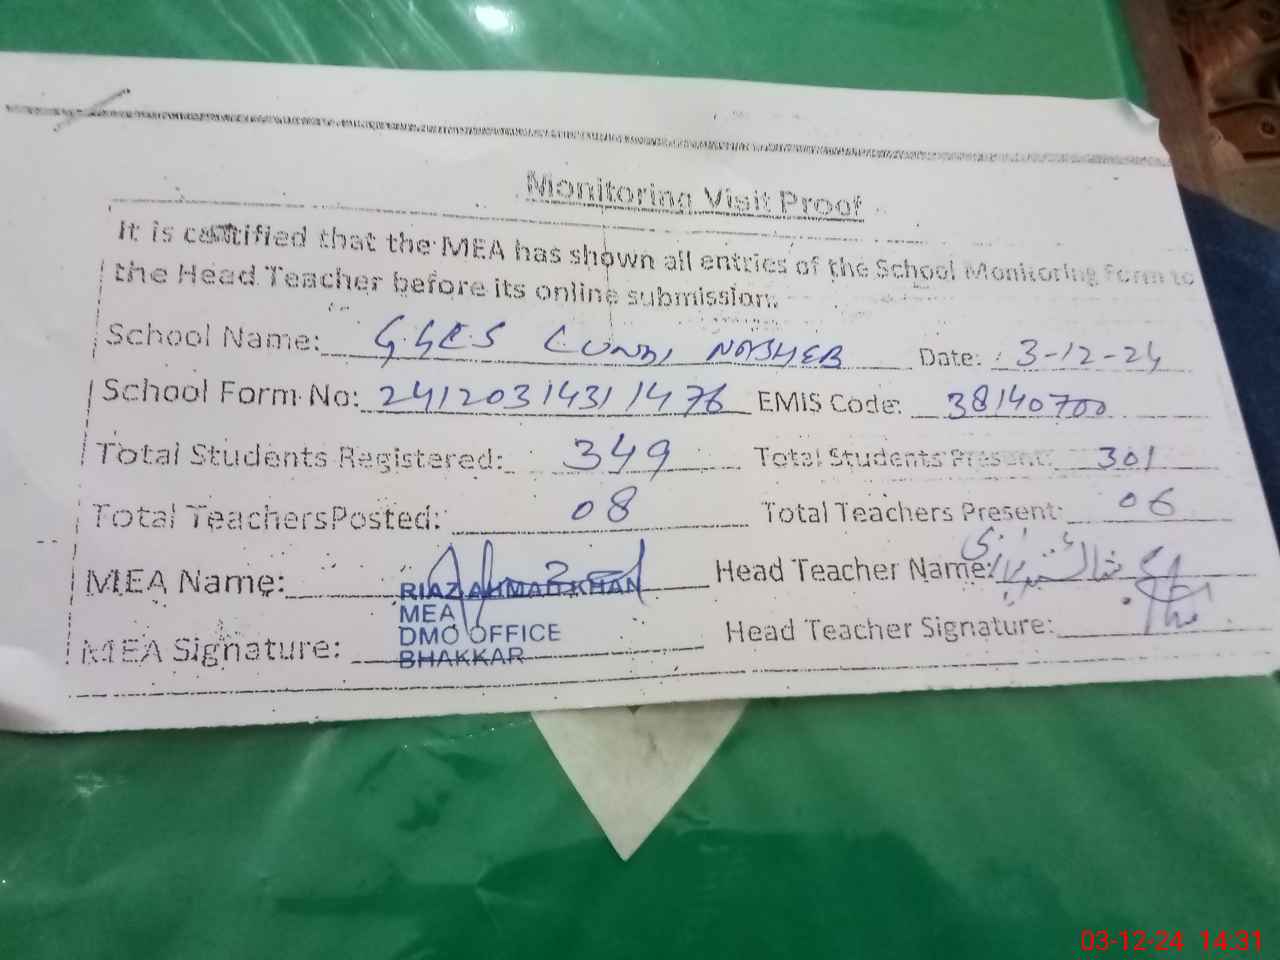 Monitoring Visit Proof
It is certified that the MEA has shown all entries of the School Monitoring Form to
the Head Teacher before its online submission.
School Name: G.GES Date: 3-12-24
School Form No: 24120314311476 EMIS Code: 38140700
Total Students Registered: 349 Total Students Present: 301
Total Teachers Posted: 08 Total Teachers Present: 06
MEA Name: Head Teacher Name:
RIAZ AHMAD KHAN
MEA
DMO OFFICE
MEA Signature: Head Teacher Signature:
BHAKKAR
03-12-24 14:31